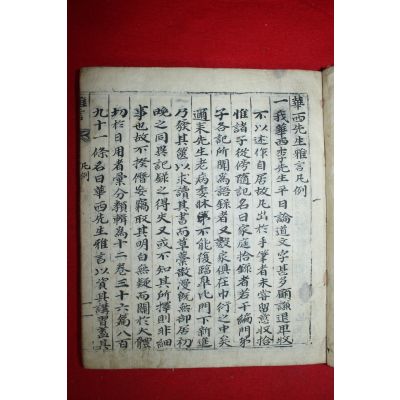 華西先生雅言凡例
一我華西李先生平日論道文字甚多顧謙退早收
不以述作自居故凡出於手筆者未嘗留意收拾
惟諸子從傍隨記名曰家庭拾錄者若干編門弟
子各記所聞爲語錄者又數家俱在巾衍之中矣
邇來先生老病委牀第不能復臨皐比門下新進
乃發其篋以求讀其書而草藁散漫旣無御居初
晚之同異記錄之得失又或不知其所擇則非細
事也故不揆僭妄竊取其明白無疑而關於大體
切於日用者彙分類輯爲十二卷三十六篇八百
九十一條名曰華西先生雅言以資其講習盖其
雅言
凡例